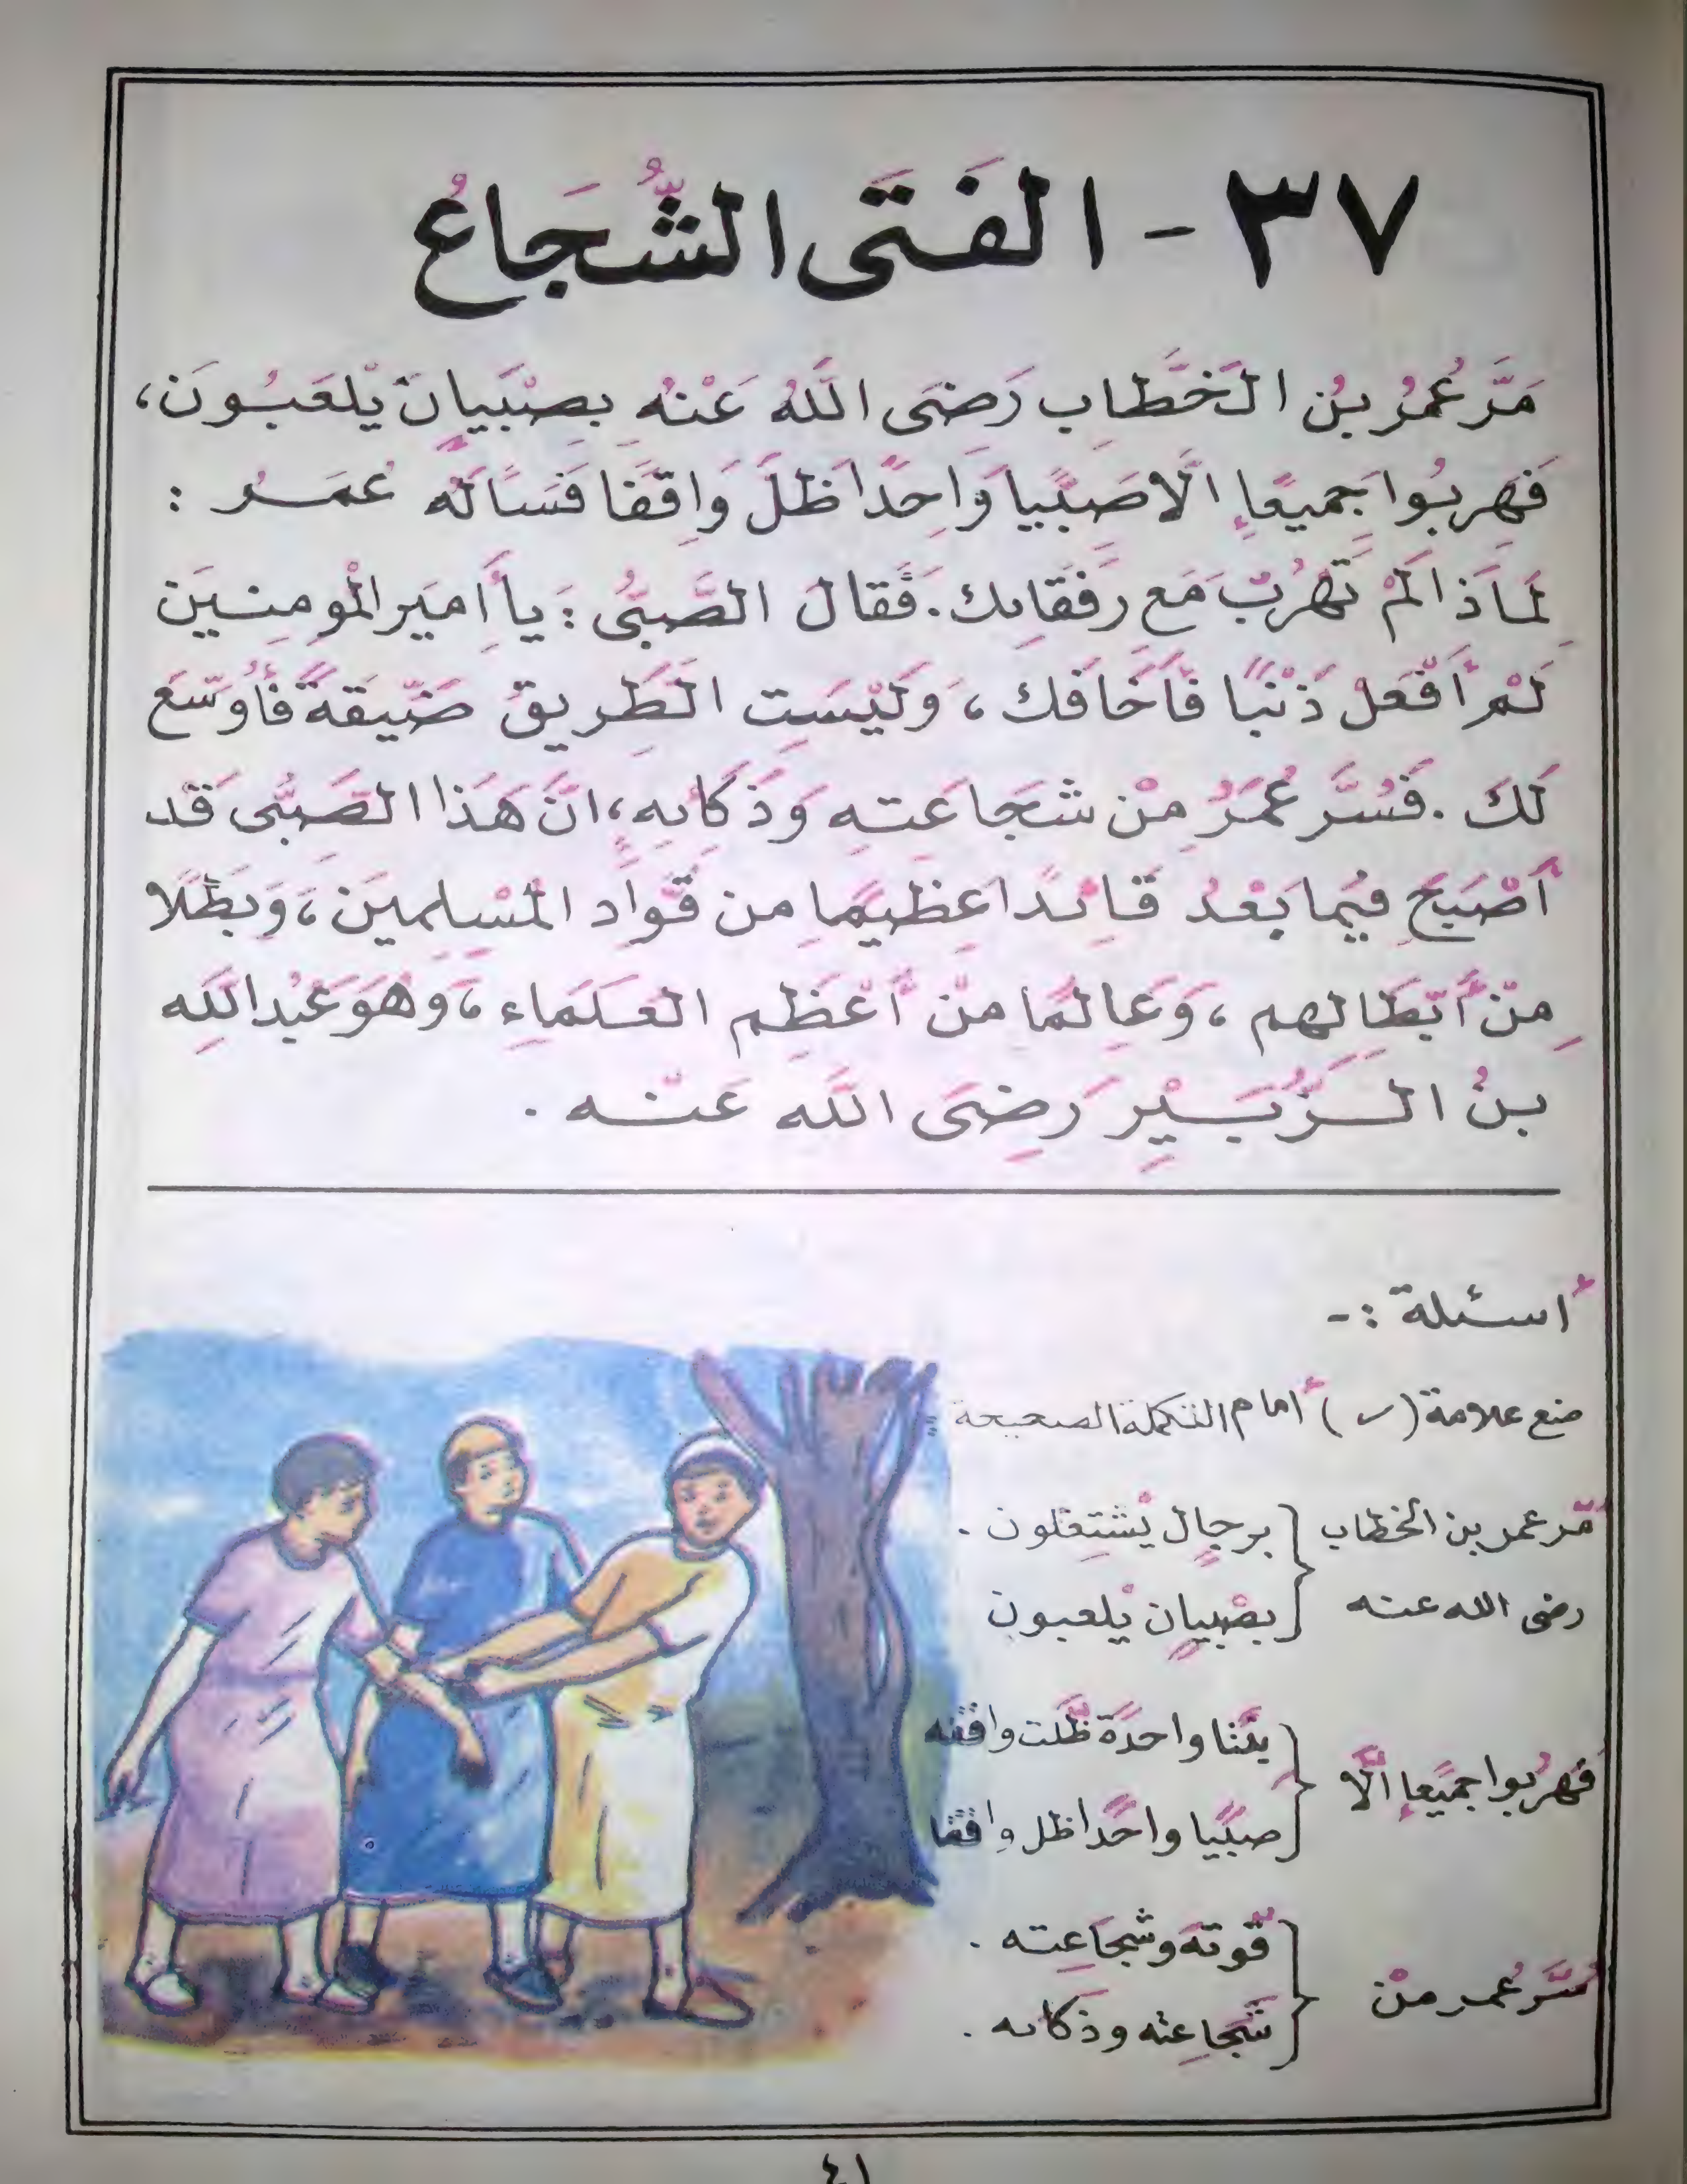 ٣٧ - الفَتَى الشُّجَاعُ
مَرَّ عُمَرُ بنُ الخَطَّابِ رَضِىَ اللَّهُ عَنْهُ بِصِبْيَانٍ يَلْعَبُونَ،
فَهِرَبُوا جَمِيعًا إِلَّا صَبِيًّا وَاحِدًا ظَلَّ وَاقِفًا فَسَأَلَهُ عُمَرُ :
لِمَاذَا لَمْ تَهْرُبْ مَع رِفَقَائِك. فَقَالَ الصَّبِىُّ : يَا أَمِيرَ المُومِنِينَ
لَمْ أَفْعَلْ ذَنْبًا فَأَخَافَك ، وَلَيْسَتِ الطَّرِيق ضَيِّقَةً فَأُوَسِّعَ
لَكَ . فَسُرَّ عُمَرُ مِنْ شَجَاعَتِهِ وَذَكَائِهِ، انَّ هَذَا الصَّبِّى قَد
أَصْبَحَ فِيمَا بَعْدُ قَائِدًا عَظِيمًا مِن قُوَّادِ المُسْلِمِينَ ، وَبَطَلًا
مِنْ أَبْطَالِهِم ، وَعَالِمًا مِنْ أَعْظَمِ العُلَمَاءِ ، وَهُوَ عَبْدُ اللَهِ
بنُ الزُّبَيْرِ رَضِىَ اللَه عَنْه .
أسئلة :-
ضع علامة ( ✓ ) أمام التكملة الصحيحة =
مَّر عمر بن الخطاب { برجالٍ يْشتغلون .
رضى الله عنه { بصْبيانٍ يْلعبون
فَهرُبوا جميًعا إلَّا { بنًتا واحدًة ظلَّت واقفه
{ صبيًّا واحدًا ظل واقفًا
سُرَّ عُمر منْ { قوته وشجاعته .
{ شجاعته وذكائه .
٤١